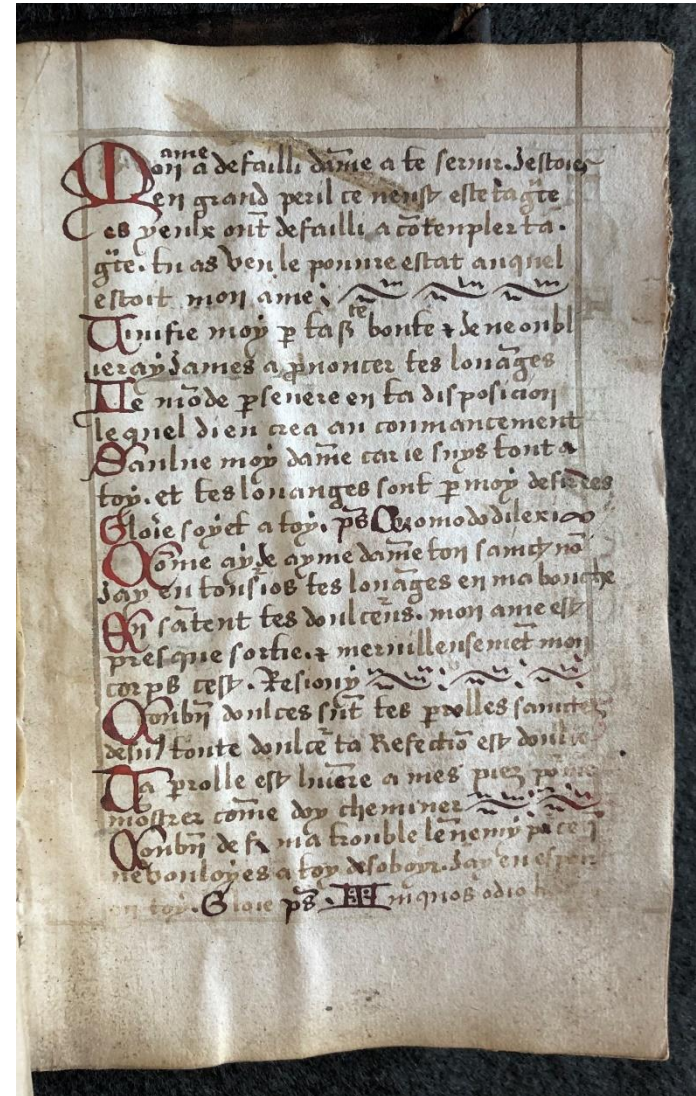 Mon ame a defailli dame a te seruir. Jestoies
en grand peril ce neust este ta gce
Ces yeulx ont defailli a cotenpler ta.
gce. tu as veu le pouure estat auquel
estoit mon ame:
Viuifie moy p ta ste bonte & Je ne oubl
ieray James a pnoncer tes louāges
Le mōde pseuere en ta disposicion
lequel dieu crea au conmancement
Saulue moy dāme car ie suys tout a
toy. et tes louanges sont p moy desirees
Gloie soyet a toy. ps Quomodo dilexi
Cōme ay Je ayme dāme ton sainct nō
Jay eu tousios tes louāges en ma bouche
En sātent tes doulceurs. mon ame est
presque sortie. & meruilleusemēt mon
corps cest. Resiouy
Conbn doulces sūt tes prolles sainctes
desus toute doulcē ta Refectiō est doulce
Ta prolle est lumere a mes piez po me
mostrer cōme doy cheminer
Conbn de fx ma trouble lēnemy
ne vouloyes a toy desoboyr. Jay eu espoir
en toy. Gloie ps. Iniquos odio